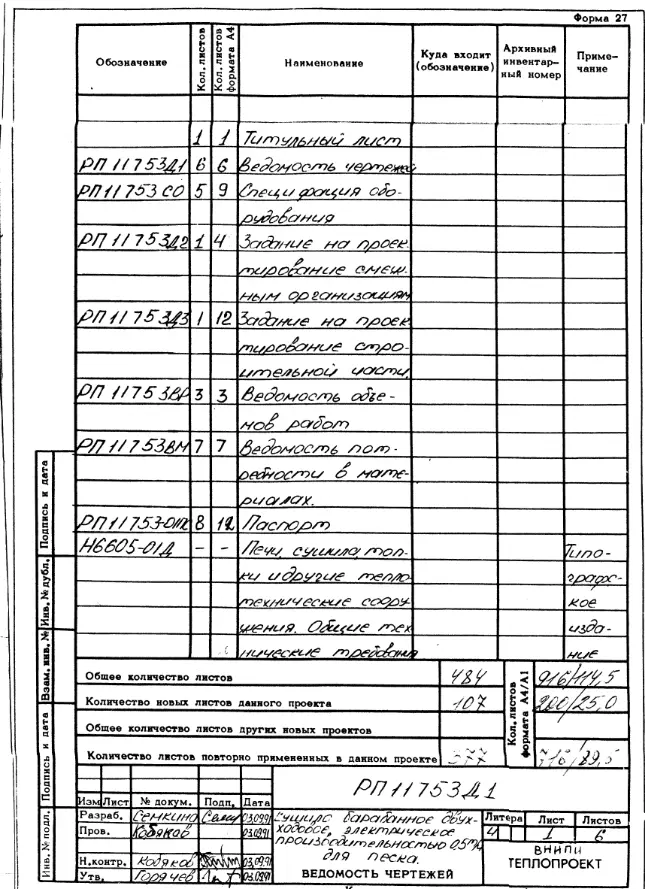 Форма 27
Обозначение Кол. листов Кол. листов формата А4 Наименование Куда входит (обозначение) Архивный инвентарный номер Примечание
1 1 Титульный лист
РП 11753Д1 6 6 Ведомость чертежей
РП11753 СО 5 9 Спецификация обо-
рудования
РП 11753Д2 1 4 Задание на проек
тирование смеж
ным организациям
РП 11753Д3 1 12 Задание на проек
тирование стро-
ительной части
РП 11753ВР 3 3 Ведомость объе-
мов работ
РП11753ВМ 7 7 Ведомость пот-
ребности в мате-
риалах.
8 Паспорт
Н6605-01Д – – Печи, сушила, топ- Типо-
ки и другие тепло графс-
технические соору кое
жения. Общие тех изда-
нические требования ние
Общее количество листов 484
Количество новых листов данного проекта 107 200/25,0
Общее количество листов других новых проектов
Количество листов повторно примененных в данном проекте 377
Кол. листов формата А4/А1
РП11753Д1
Изм Лист № докум. Подп. Дата
Разраб. Семкина 03.09.91
Пров. Кобяков 03.09.91
Н.контр. Кобяков 03.09.91
Утв. Горячев 03.09.91
Сушило барабанное двух-
ходовое, электрическое
производительностью 0,5 т/ч
для песка.
ВЕДОМОСТЬ ЧЕРТЕЖЕЙ
Литера Лист Листов
1 6
ВНИПИ
ТЕПЛОПРОЕКТ
Подпись и дата
Инв. № дубл.
Взам. инв. №
Подпись и дата
Инв. № подл.